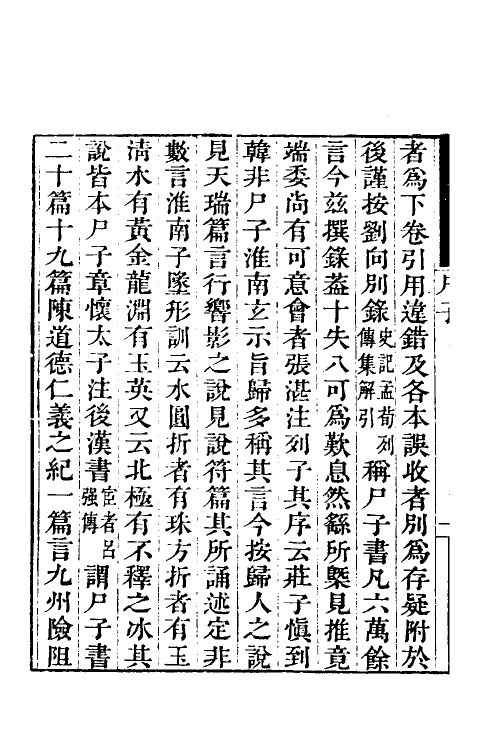 者爲下卷引用違錯及各本誤收者別爲存疑附於
後謹按劉向別錄史記孟荀列傳集解引稱尸子書凡六萬餘
言今茲撰錄蓋十失八可爲歎息然繇所槩見推竟
端委尚有可意會者張湛注列子其序云莊子愼到
韓非尸子淮南玄示旨歸多稱其言今按歸人之說
見天瑞篇言行響影之說見說符篇其所誦述定非
數言淮南子墬形訓云水圓折者有珠方折者有玉
淸水有黃金龍淵有玉英又云北極有不釋之冰其
說皆本尸子章懷太子注後漢書宦者呂强傳謂尸子書
二十篇十九篇陳道德仁義之紀一篇言九州險阻